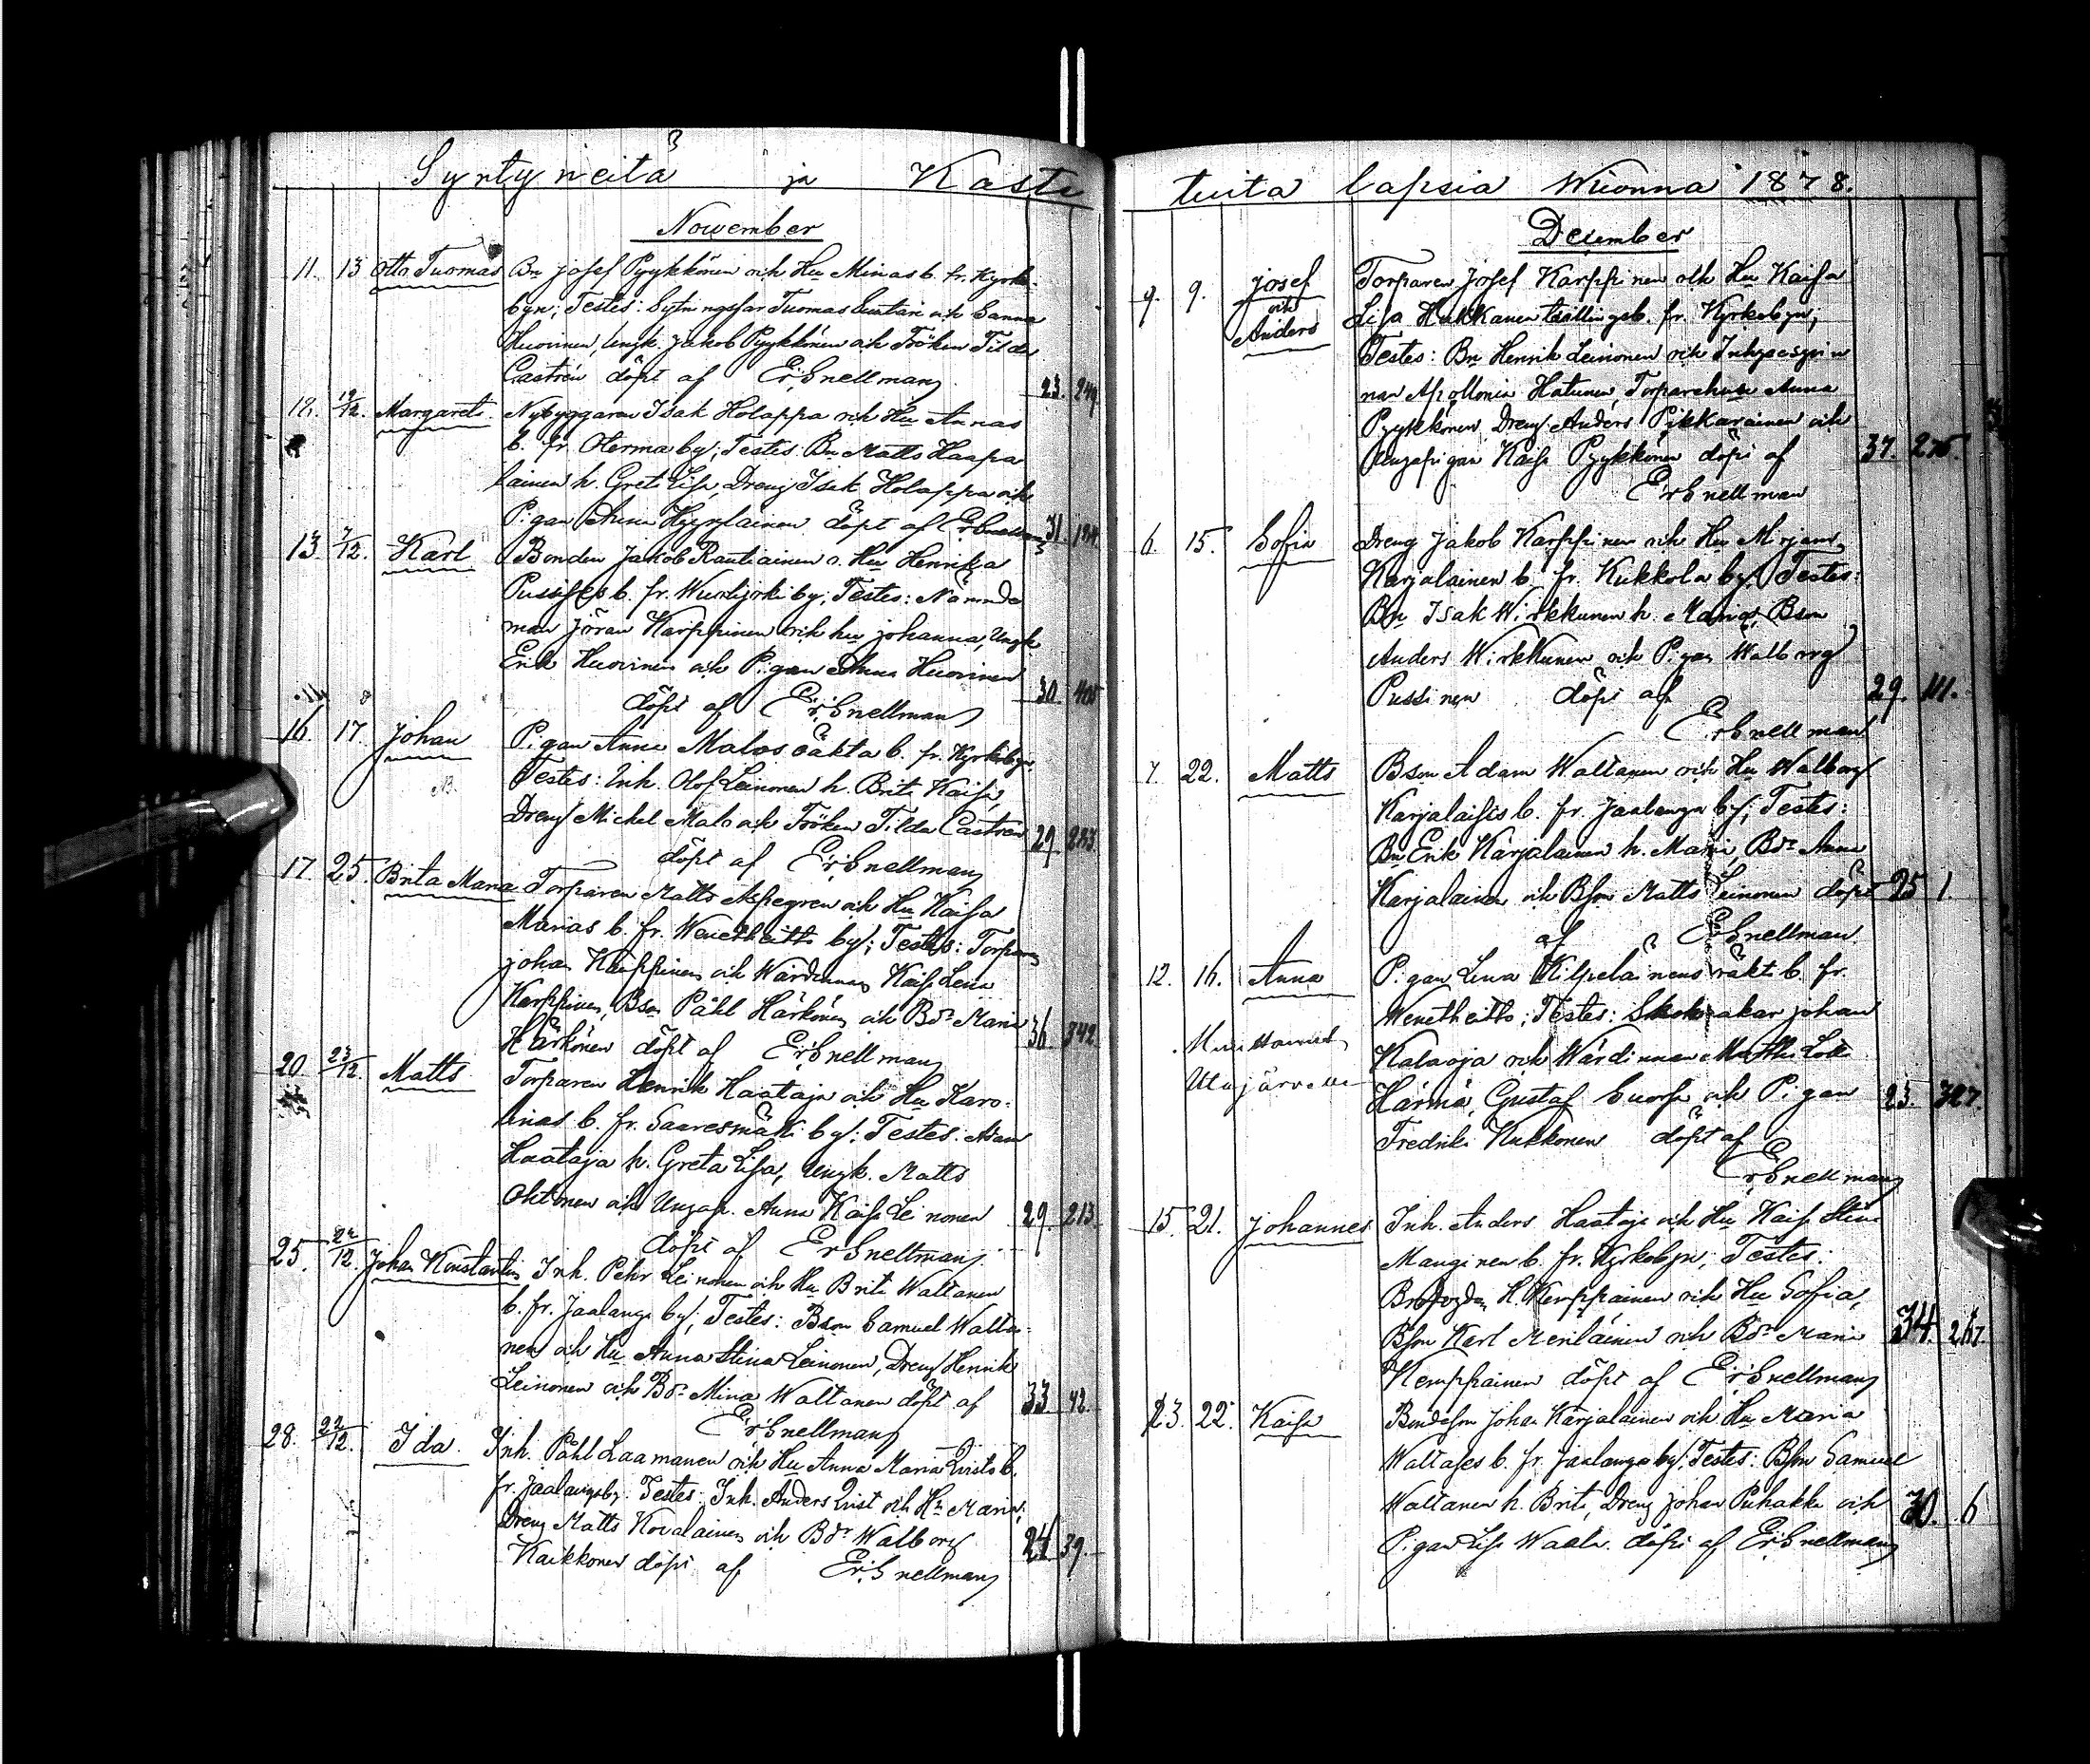 Syntyneitä ja Kaste
November
11. 13 Otto Tuomas Bn Josef Pyykkönen och Hu Minas b. fr. Kyrko-
byn; Testes: Sytningsfar Tuomas och Sanna
Huovinen, Ungk. Jakob Pyykkönen och Fröken Tilda
Castrén döpt af Er. Snellman 23. 249.
12/12. Margareta Nybyggaren Isak Holappa och Hu Annas
b. fr. Oterma by; Testes: Bn Matts Haapa
lainen h. Greta Lisa, Dreng Isak Holappa och
Pigan Anna döpt af Er. Snellman 31.
13. 7/12. Karl Bonden Jakob Rautiainen o. Hu Henrika
Pussises b. fr. by; Testes: Nämnde
man Jöran Karppinen och hu Johanna, Ungk.
Erik Huovinen och Pigan Anna Huovinen 30.
döpt af Er. Snellman
16. 17. Johan Pigan Anna Malos oäkta b. fr. Kyrkobyn.
Testes: Inh. Olof Leinonen h. Brita Kaisa,
Dreng Michel Malo och Fröken Tilda Castrén 29. 283.
döpt af Er. Snellman
17. 25. Brita Maria Torparen Matts Aspegren och Hu Kaisa
Marias b. fr. Wenetheitto by; Testes: Torparen
Johan Karppinen och Wärdinnan Kaisa Lena
Karppinen, Bson Påhl Härkönen och Bdr Maria
Härkönen döpt af Er. Snellman 36. 342.
20. 23/12. Matts Torparen Henrik Haataja och Hu Karo-
linas b. fr. Saaresmäki by; Testes: Adam
Haataja h. Greta Lisa, Ungk. Matts
Oktonen och Ungap. Anna Kaisa Leinonen 29. 213.
döpt af Er Snellman
25. 22/12. Johan Konstantin Inh. Pehr Leinonen och Hu Brita Waltanen
b. fr. Jaalanga by; Testes: Bson Samuel Walta-
nen och Hu Anna Stina Leinonen, Dreng Henrik
Leinonen och Bdr Mina Waltanen döpt af 33. 42.
Er. Snellman
28. 22/12. Ida. Inh. Påhl Laamanen och Hu Anna Maria Qvists b.
fr. Jaalangaby. Testes: Inh. Anders Qvist och Hu Maria,
Dreng Matts Kovalainen och Bdr Walborg
Kaikkonen döpt af Er. Snellman 24. 39.
tuita lapsia Wuonna 1878.
December
9. 9. Josef Torparen Josef Karppinen och Hu Kaisa
och Lisa Hakkanen tvillingsb. fr. Kyrkobyn;
Anders Testes: Bn Henrik Leinonen och Inhysesqvin
nan Apollonia Hatunen, Torparehu Anna
Pyykkönen, Dreng Anders Pikkarainen och
Ungapigan Kaisa Pyykkönen döpt af 37.
Er Snellman
6. 15. Sofia Dreng Jakob Karppinen och Hu Mirjam
Karjalainen b. fr. Kukkola by; Testes:
Bn Isak Wirkkunen h. Maria, Bson
Anders Wirkkunen och Pigan Walborg
Pussinen döpt af 29. 111.
Er Snellman
7. 22. Matts Bson Adam Waltanen och Hu Walborg
Karjalaises b. fr. Jaalanga by; Testes:
Bn Erik Karjalainen h. Maria, Bdr Anna
Karjalainen och Bson Matts Leinonen döpt 25 1.
af Er Snellman.
12. 16. Anna Pigan Lena Kilpeläinens oäkt b. fr.
Wenetheitto; Testes: Skomakar Johan
Kalaoja och Wärdinnan
Ulujärvelle Härmä, Gustaf och Pigan 23. 327.
Fredrika Kukkonen döpt af
Er. Snellman
15. 21. Johannes Inh. Anders Haataja och Hu Kaisa Stina
Manginen b. fr. Kyrkobyn; Testes:
H. Kemppainen och Hu Sofia,
Bson Karl Meriläinen och Bdr Maria 34.
Kemppainen döpt af Er. Snellman
23. 22. Kaisa Bondeson Johan Karjalainen och Hu Maria
Waltases b. fr. Jaalanga by. Testes: Bson Samuel
Waltanen h. Brita, Dreng Johan Puhakka och 30. 6
Pigan Lisa Waala. döpt af Er Snellman